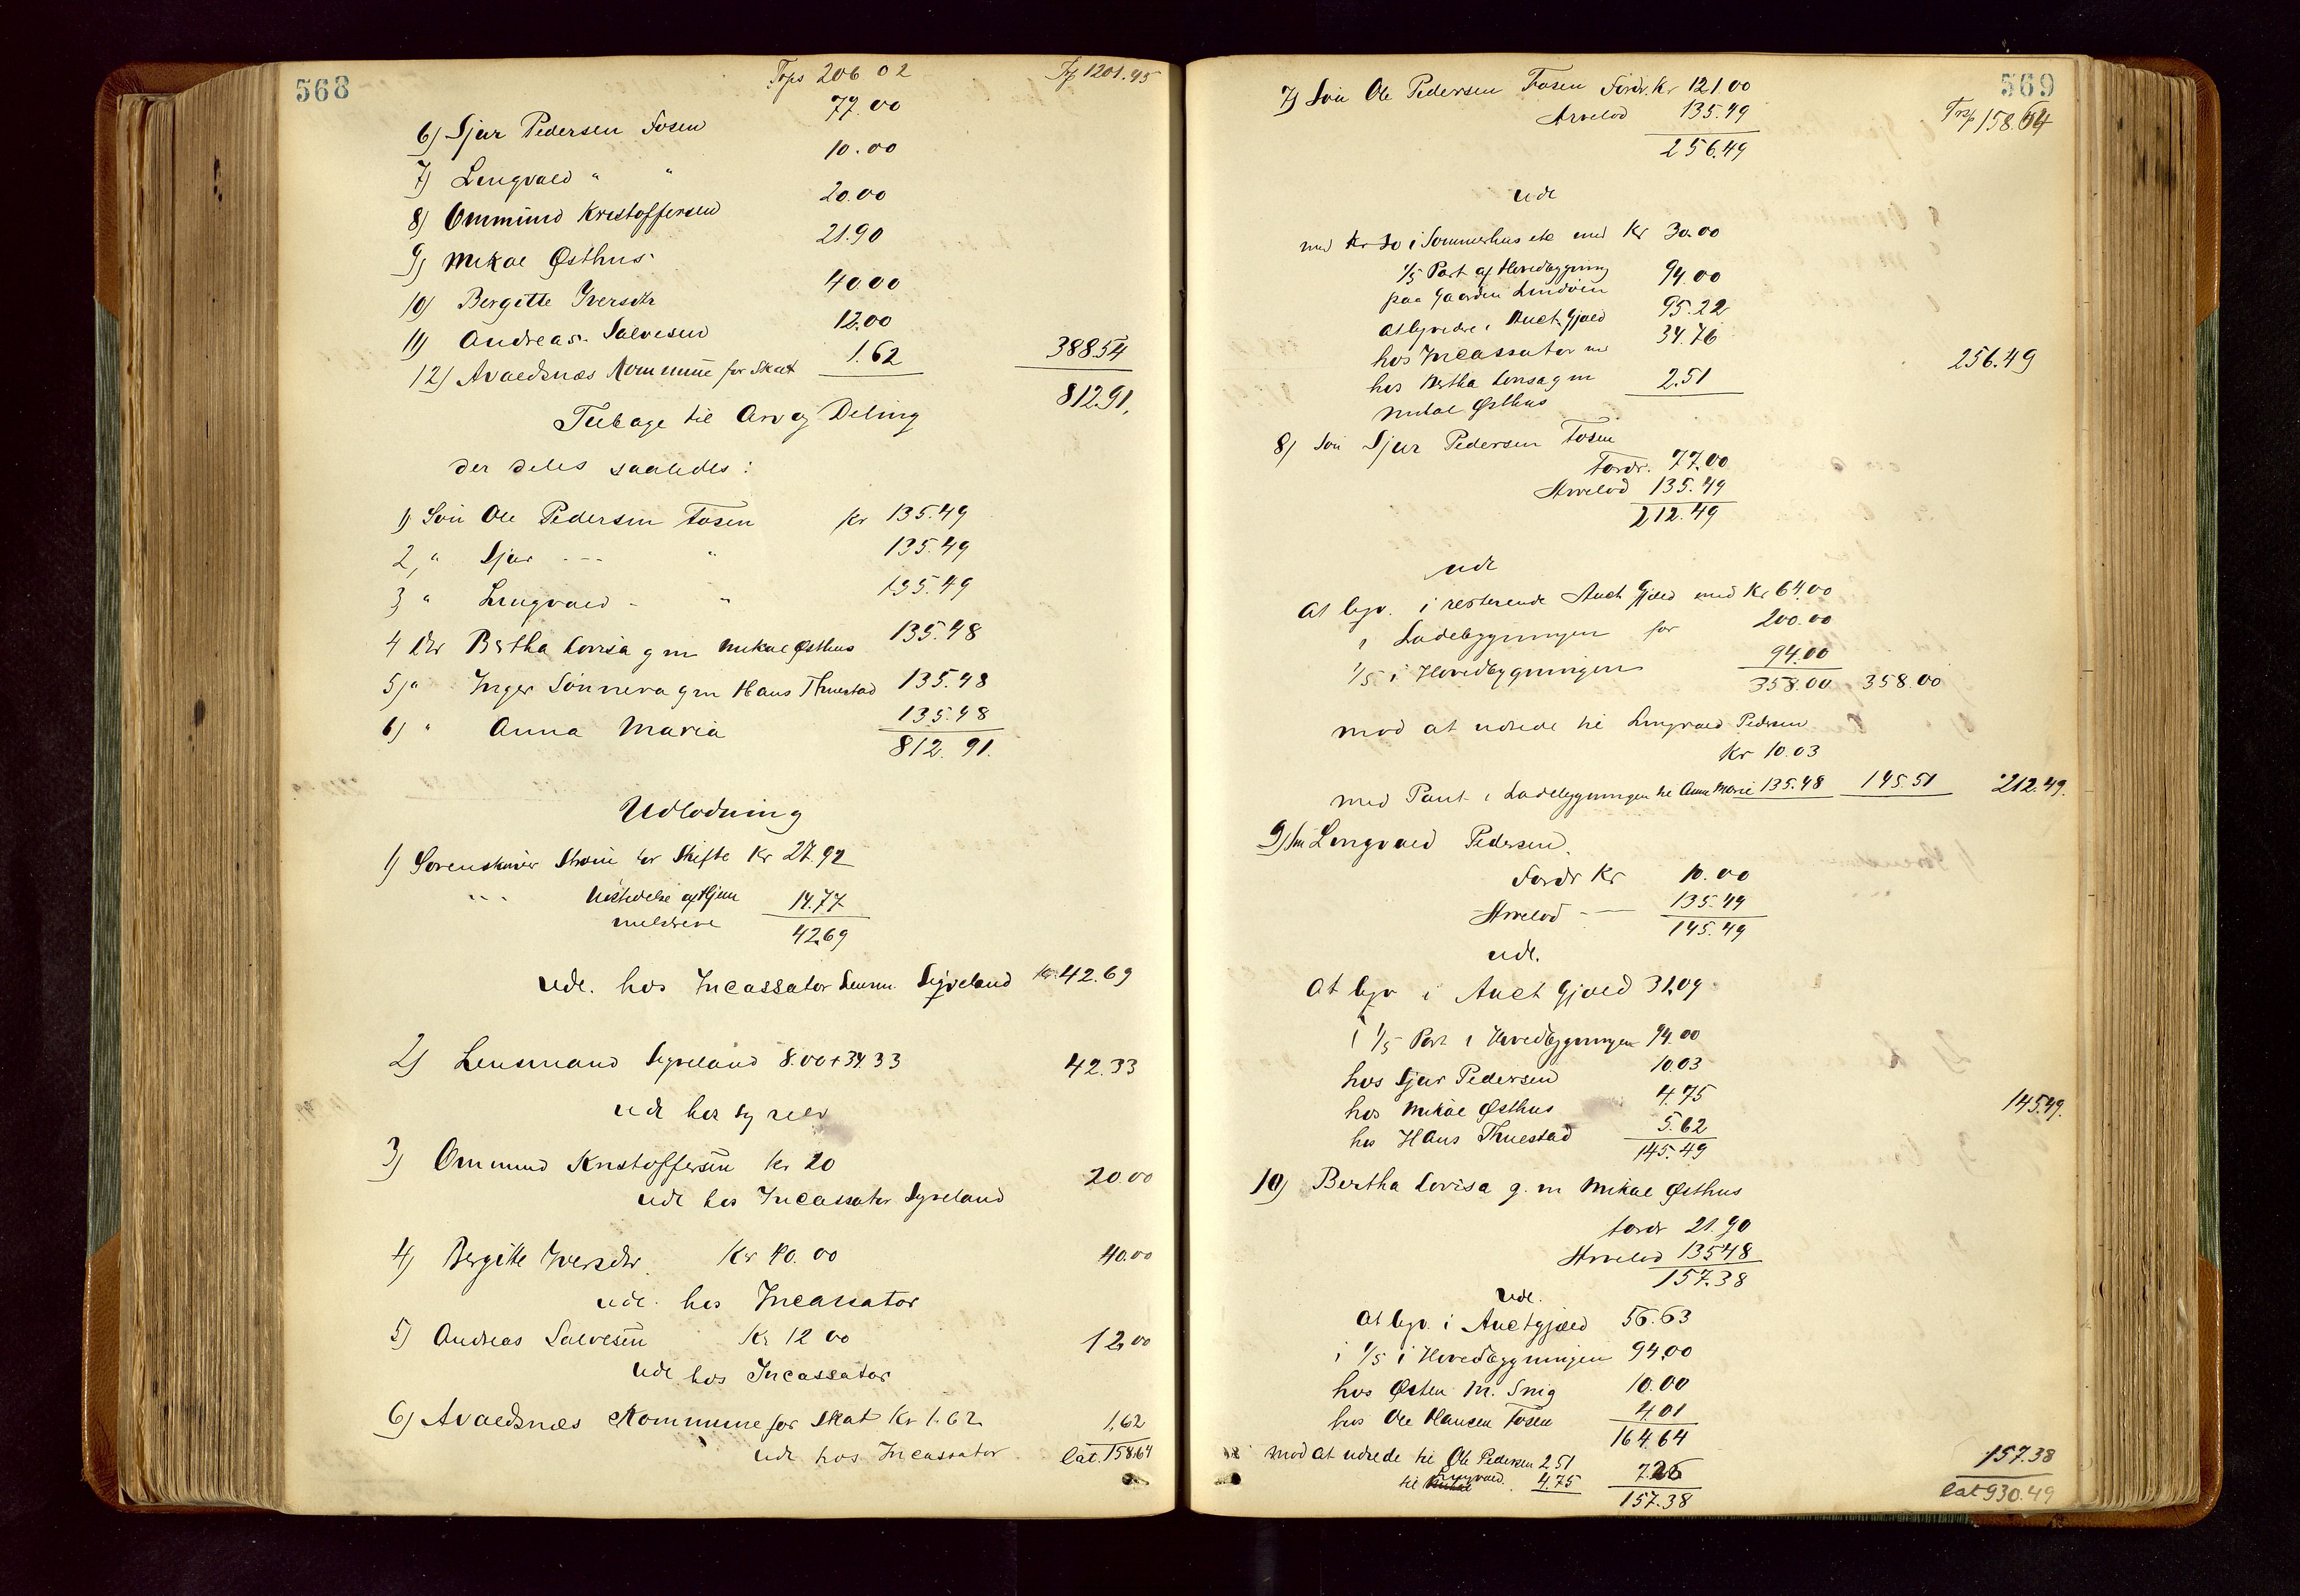 568
Trps 206 02 Trp 1201.45
6) Sjur Pedersen Fosen 77.00
7) Lengvald " " 10.00
8) Ommund Kristoffersen 20.00
9) Mikal Østhus 21.90
10) Bergitte Iversdtr 40.00
11) Andreas Salvesen 12.00
12) Avaldsnæs Kommune for Skat 1.62 388.54
Tilbage til Arv og Deling 812.91.
der deles saaledes:
1) Søn Ole Pedersen Fosen Kr 135.49
2, " Sjur --- " 135.49
3 " Lengvald - " 135.49
4 Dtr Bertha Lovisa g m Mikal Østhus 135.48
5) " Inger Sønneva g m Hans Thuestad 135.48
6) " Anna Maria 135.48
812.91.
Udlodning
1) Sorenskriver Strøm for Skifte Kr 27.92
" " Udstedelse af Hjem 14.77
melsbreve 42.69
udl. hos Incassator Lensm. Sygveland Kr 42.69
2) Lensmand Sygveland 8.00+34.33 42.33
udl hos sig selv
3) Ommund Kristoffersen Kr 20 20.00
udl hos Incassator Sygveland
4) Bergitte Iversdtr. Kr 40.00 40.00
udl. hos Incassator
5) Andreas Salvesen Kr 12 00 12,00
udl hos Incassator
6) Avaldsnæs Kommune for Skat Kr 1.62 1,62
udl hos Incassator lat. 158.64
569
7) Søn Ole Pedersen Fosen Fordr. Kr 121.00
Arvelod 135.49 Trsp 158.64
256.49
udl
med Kr 30 i Sommerhus etc med Kr 30.00
1/5 Part af Hovedbygning
paa Gaarden Lindøen 94.00
at ligvidere i Auct. Gjæld 95.22
hos Incassator m 34.76
hos Bertha Lovisa g m 2.51 256.49
Mikal Østhus
8) Søn Sjur Pedersen Fosen
Fordr. 77.00
Arvelod 135.49
212.49
udl
at liqv. i resterende Auct Gjæld med Kr 64.00
i Ladebygningen for 200.00
1/5 i Hovedbygningen 94.00
358.00 358.00
mod at udrede til Lengvald Pedersen
Kr 10.03
med Pant i Ladebygningen til Anna Marie 135.48 145.51 212.49.
9) Søn Lengvald Pedersen.
Fordr Kr 10.00
Arvelod -- 135.49
145.49
udl.
at liqv i Auct Gjæld 31,09
i 1/5 Part i Hovedbygningen 94.00
hos Sjur Pedersen 10.03
hos Mikal Østhus 4.75 145.49.
hos Hans Thuestad 5.62
145.49
10) Bertha Lovisa g. m Mikal Østhus
fordr 21.90
Arvelod 135.48
157.38
udl.
at liqv. i Auctgjæld 56.63
i 1/5 i Hovedbygningen 94,00
hos Østen M. Snig 10.00
hos Ole Hansen Fosen 4.01
164.64
mod at udrede til Ole Pedersen 2.51 157.38
til Mikal Lengvald. 4.75 7.26
157.38 lat 930.49